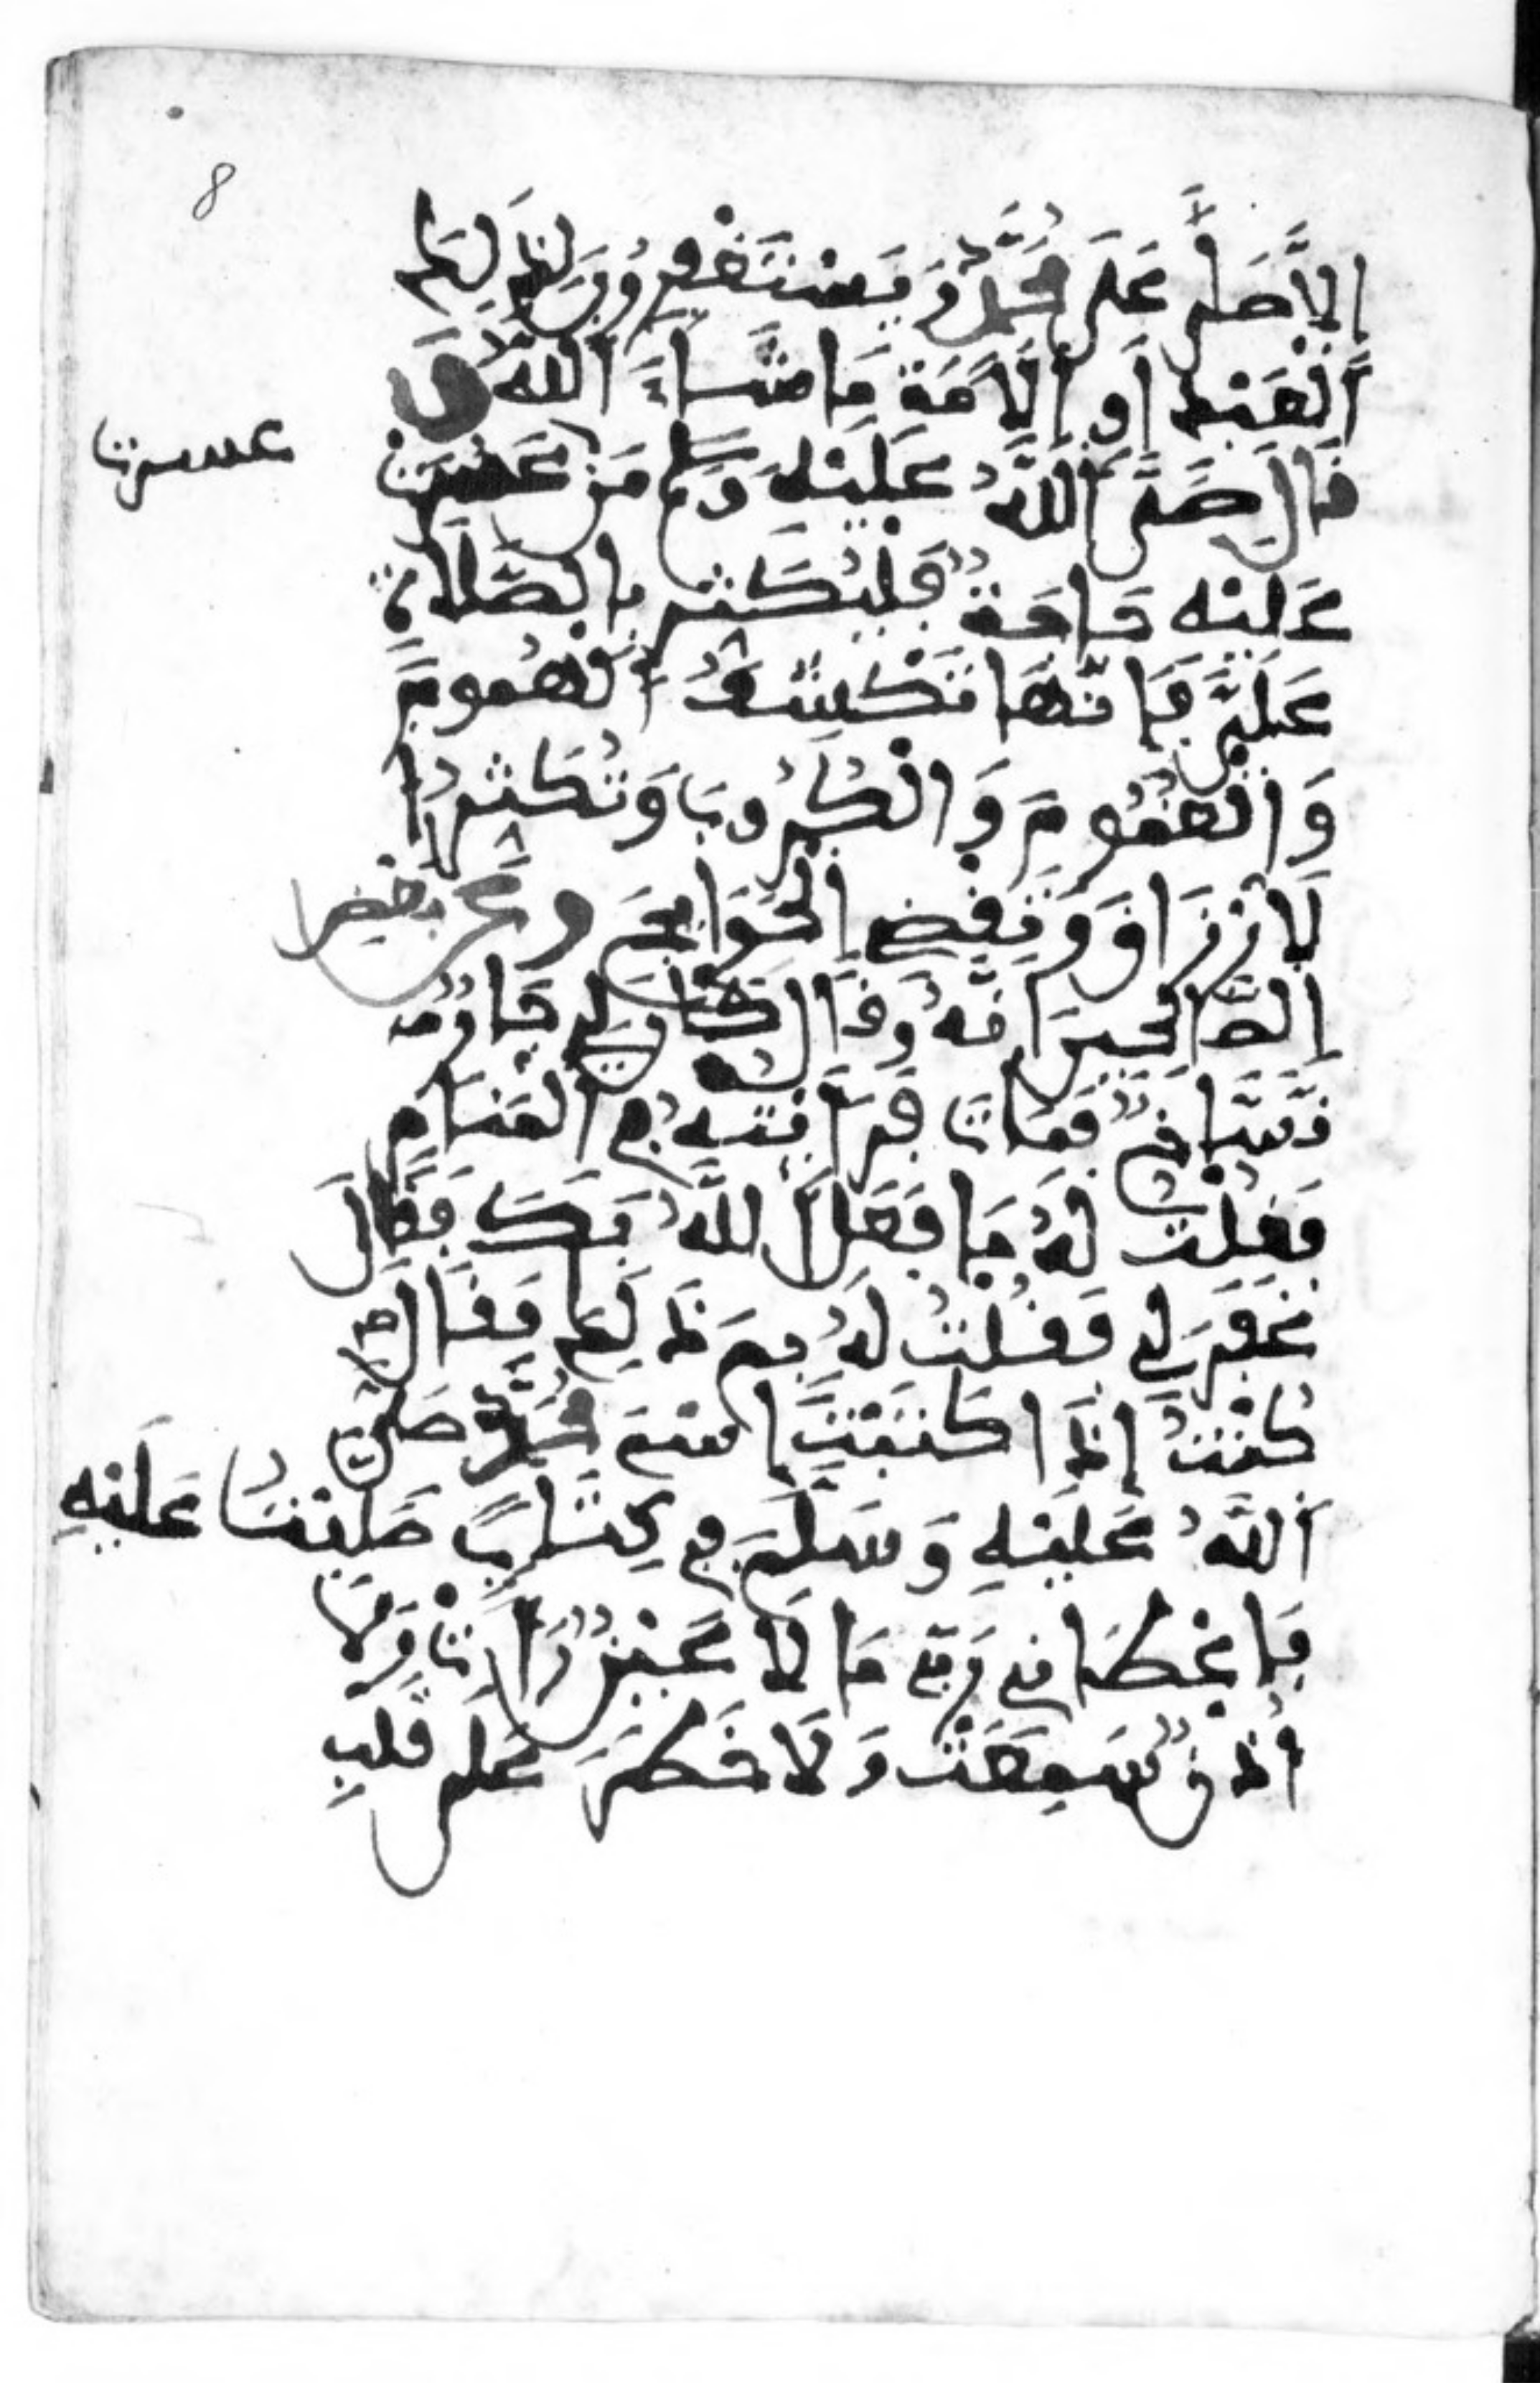 8
إلا صلى على محمد ويستغفرون لذلك
العبد أو الأمة ما شاء الله و
قال صلى الله عليه وسلم من عسرت
عسرت
عليه حاجة فليكثر بالصلاة
علي فإنها تكشف الهموم
والغموم والكروب وتكثر ا
لأرزاق وتقضي الحوائج وعن بعض
الصالحين انه وقال كان لي جار
نساخ فمات فرأيته في المنام
فقلت له ما فعل الله بك فقال
غفر لي فقلت له فبم ذلك فقال
كنت إذا كتبت اسم محمد صلى
الله عليه وسلم في كتاب صليت عليه
فأعطاني ربي ما لا عين رأت ولا
أذن سمعت ولا خطر على قلب